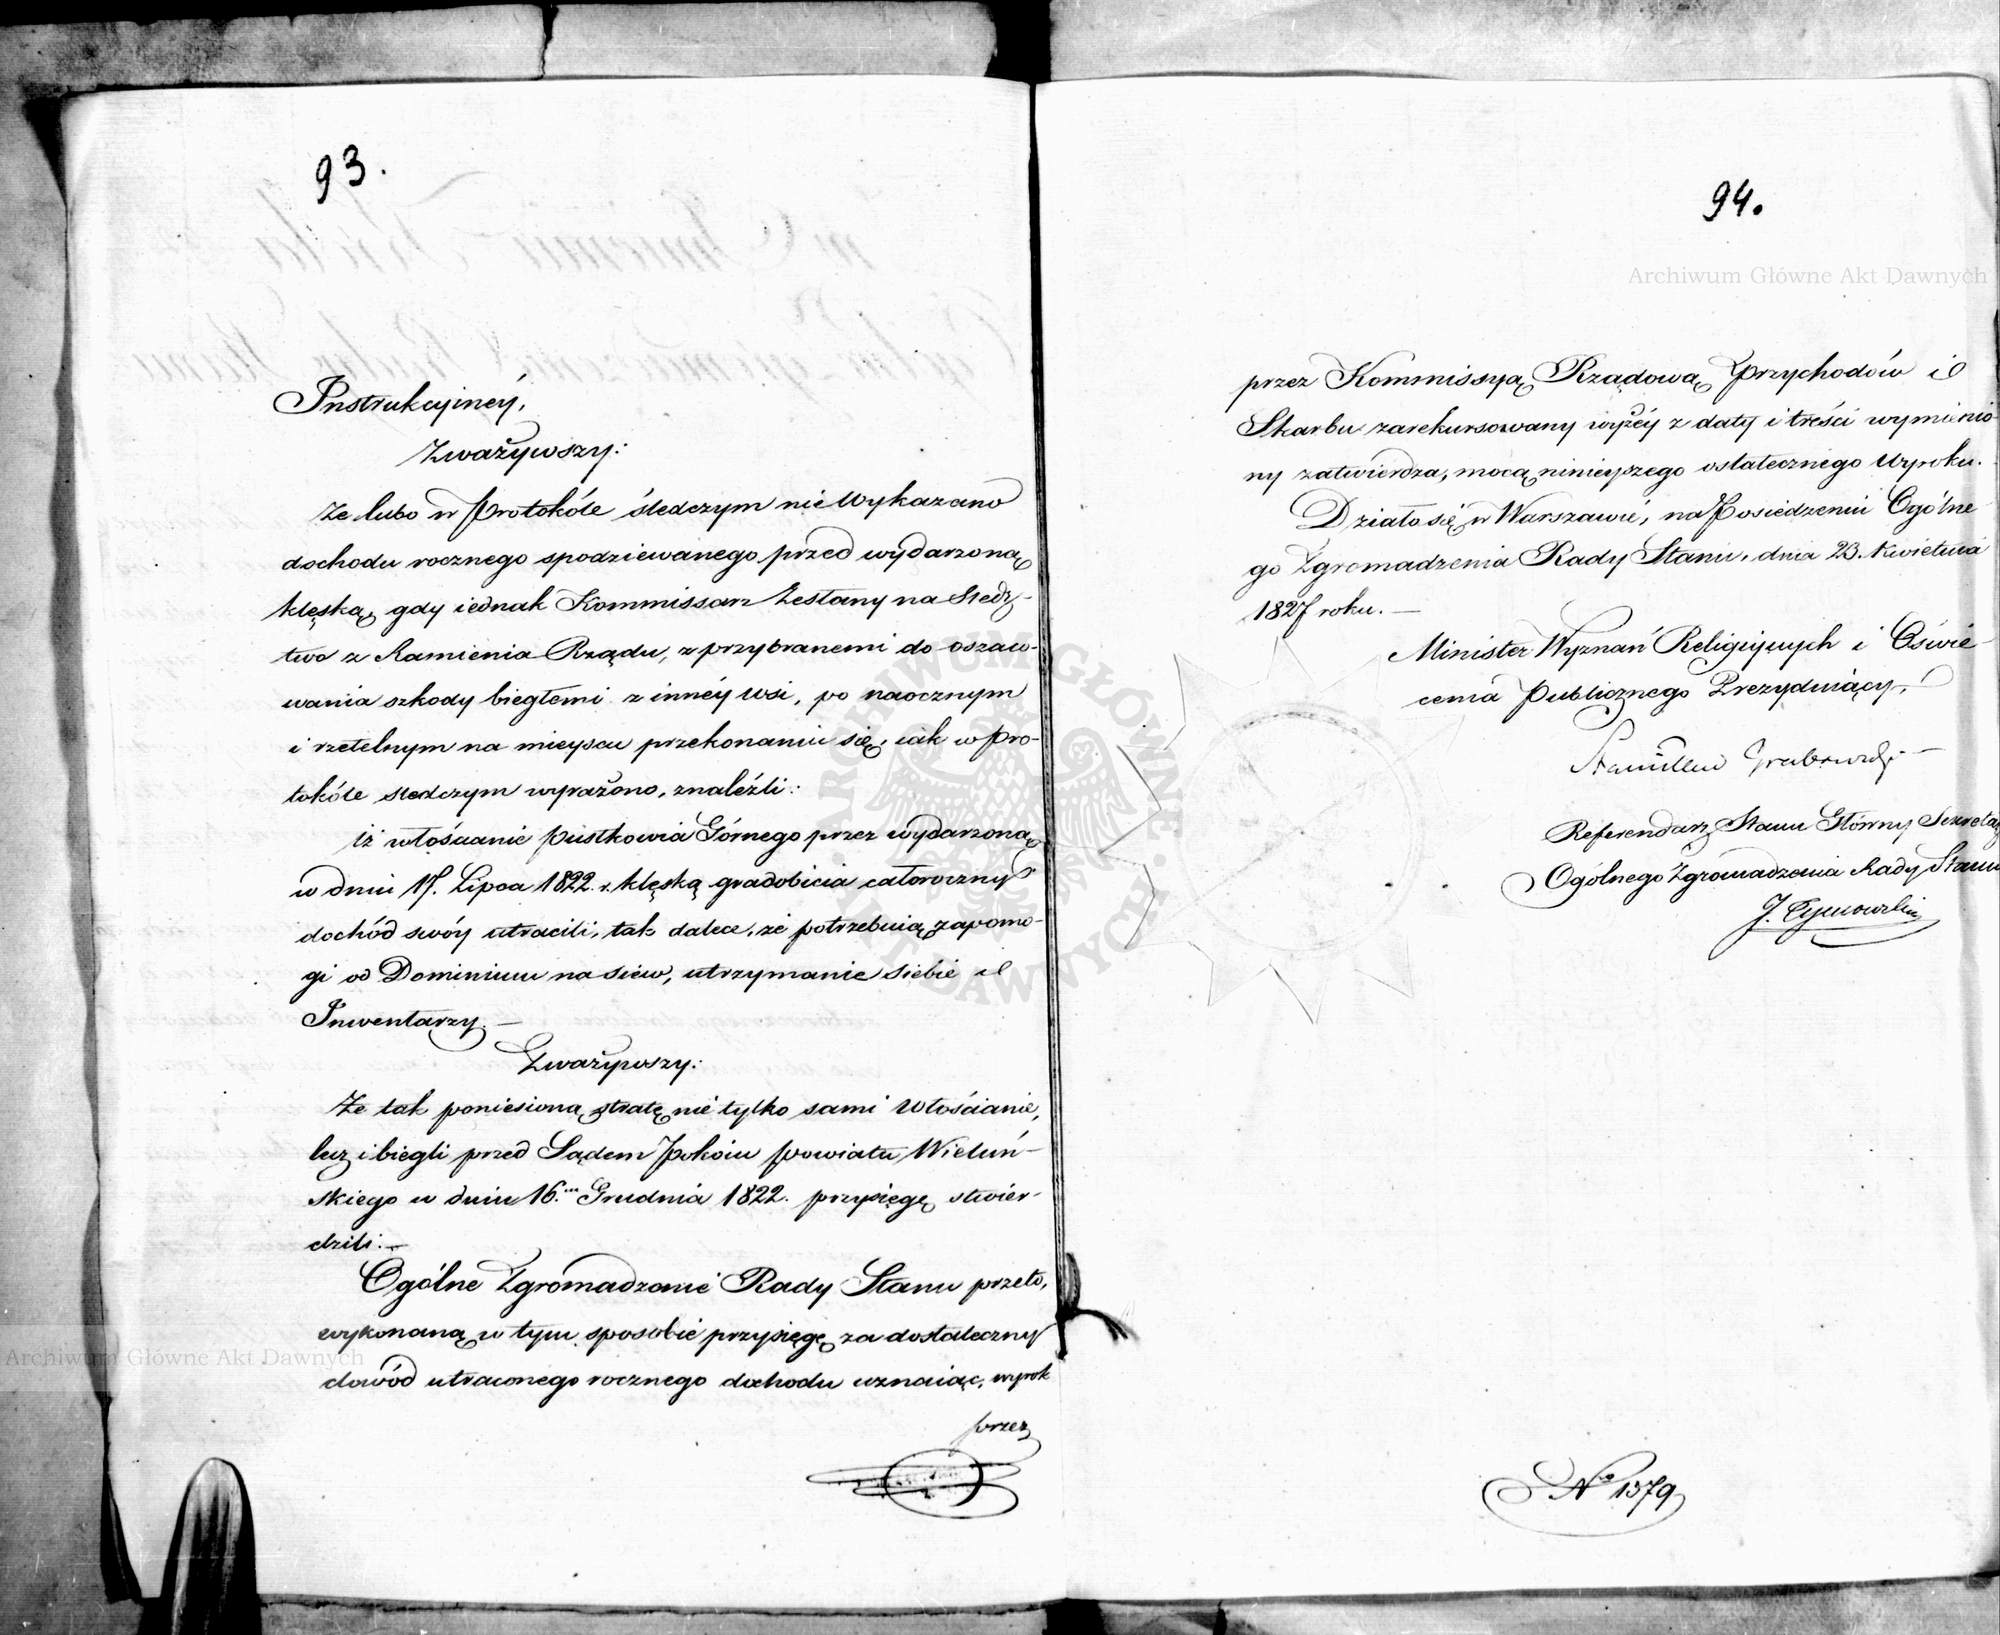 93.
Instrukcyinéy,
Zważywszy:
Że lubo w Protokóle śledczym nie wykazano
dochodu rocznego spodziewanego przed wydarzoną
klęską, gdy iednak Kommissarz Zesłany na śledz-
two z Ramienia Rządu, z przybranemi do oszaco-
wania szkody biegłemi z innéy wsi, po naocznym
i rzetelnym na mieyscu przekonaniu się, iak w Pro-
tokóle śledczym wyrażono, znaleźli:
iż włościanie Pustkowia Górnego przez wydarzoną
w dniu 17. Lipca 1822 r. klęską gradobicia całoroczny
dochód swóy utracili, tak dalece, że potrzebuią zapomo-
gi od Dominium na siew, utrzymanie siebie i
Inwentarzy. —
Zważywszy:
Że tak poniesioną stratę nie tylko sami Włościanie,
lecz i biegli przed Sądem Pokoiu Powiatu Wieluń-
skiego w dniu 16. Grudnia 1822. przysięgą stwier-
dzili: —
Ogólne Zgromadzenie Rady Stanu przeto,
wykonaną w tym sposobie przysięgę za dostateczny
dowód utraconego rocznego dochodu uznaiąc, wyrok
przez
94.
przez Kommissyą Rządową Przychodów i
Skarbu zarekursowany wyżéy z daty i treści wymienio-
ny zatwierdza, mocą ninieyszego ostatecznego Wyroku.
Działo się w Warszawie, na Posiedzeniu Ogólne-
go Zgromadzenia Rady Stanu, dnia 23. Kwietnia
1827 roku. —
Minister Wyznań Religiynych i Oświe-
cenia Publicznego Prezyduiący,
Stanisław Grabowski —
Referendarz Stanu Główny Sekretarz
Ogólnego Zgromadzenia Rady Stanu
J. Tymowski
No 1379
Archiwum Główne Akt Dawnych
Archiwum Główne Akt Dawnych
· ARCHIWUM GŁÓWNE · AKT DAWNYCH